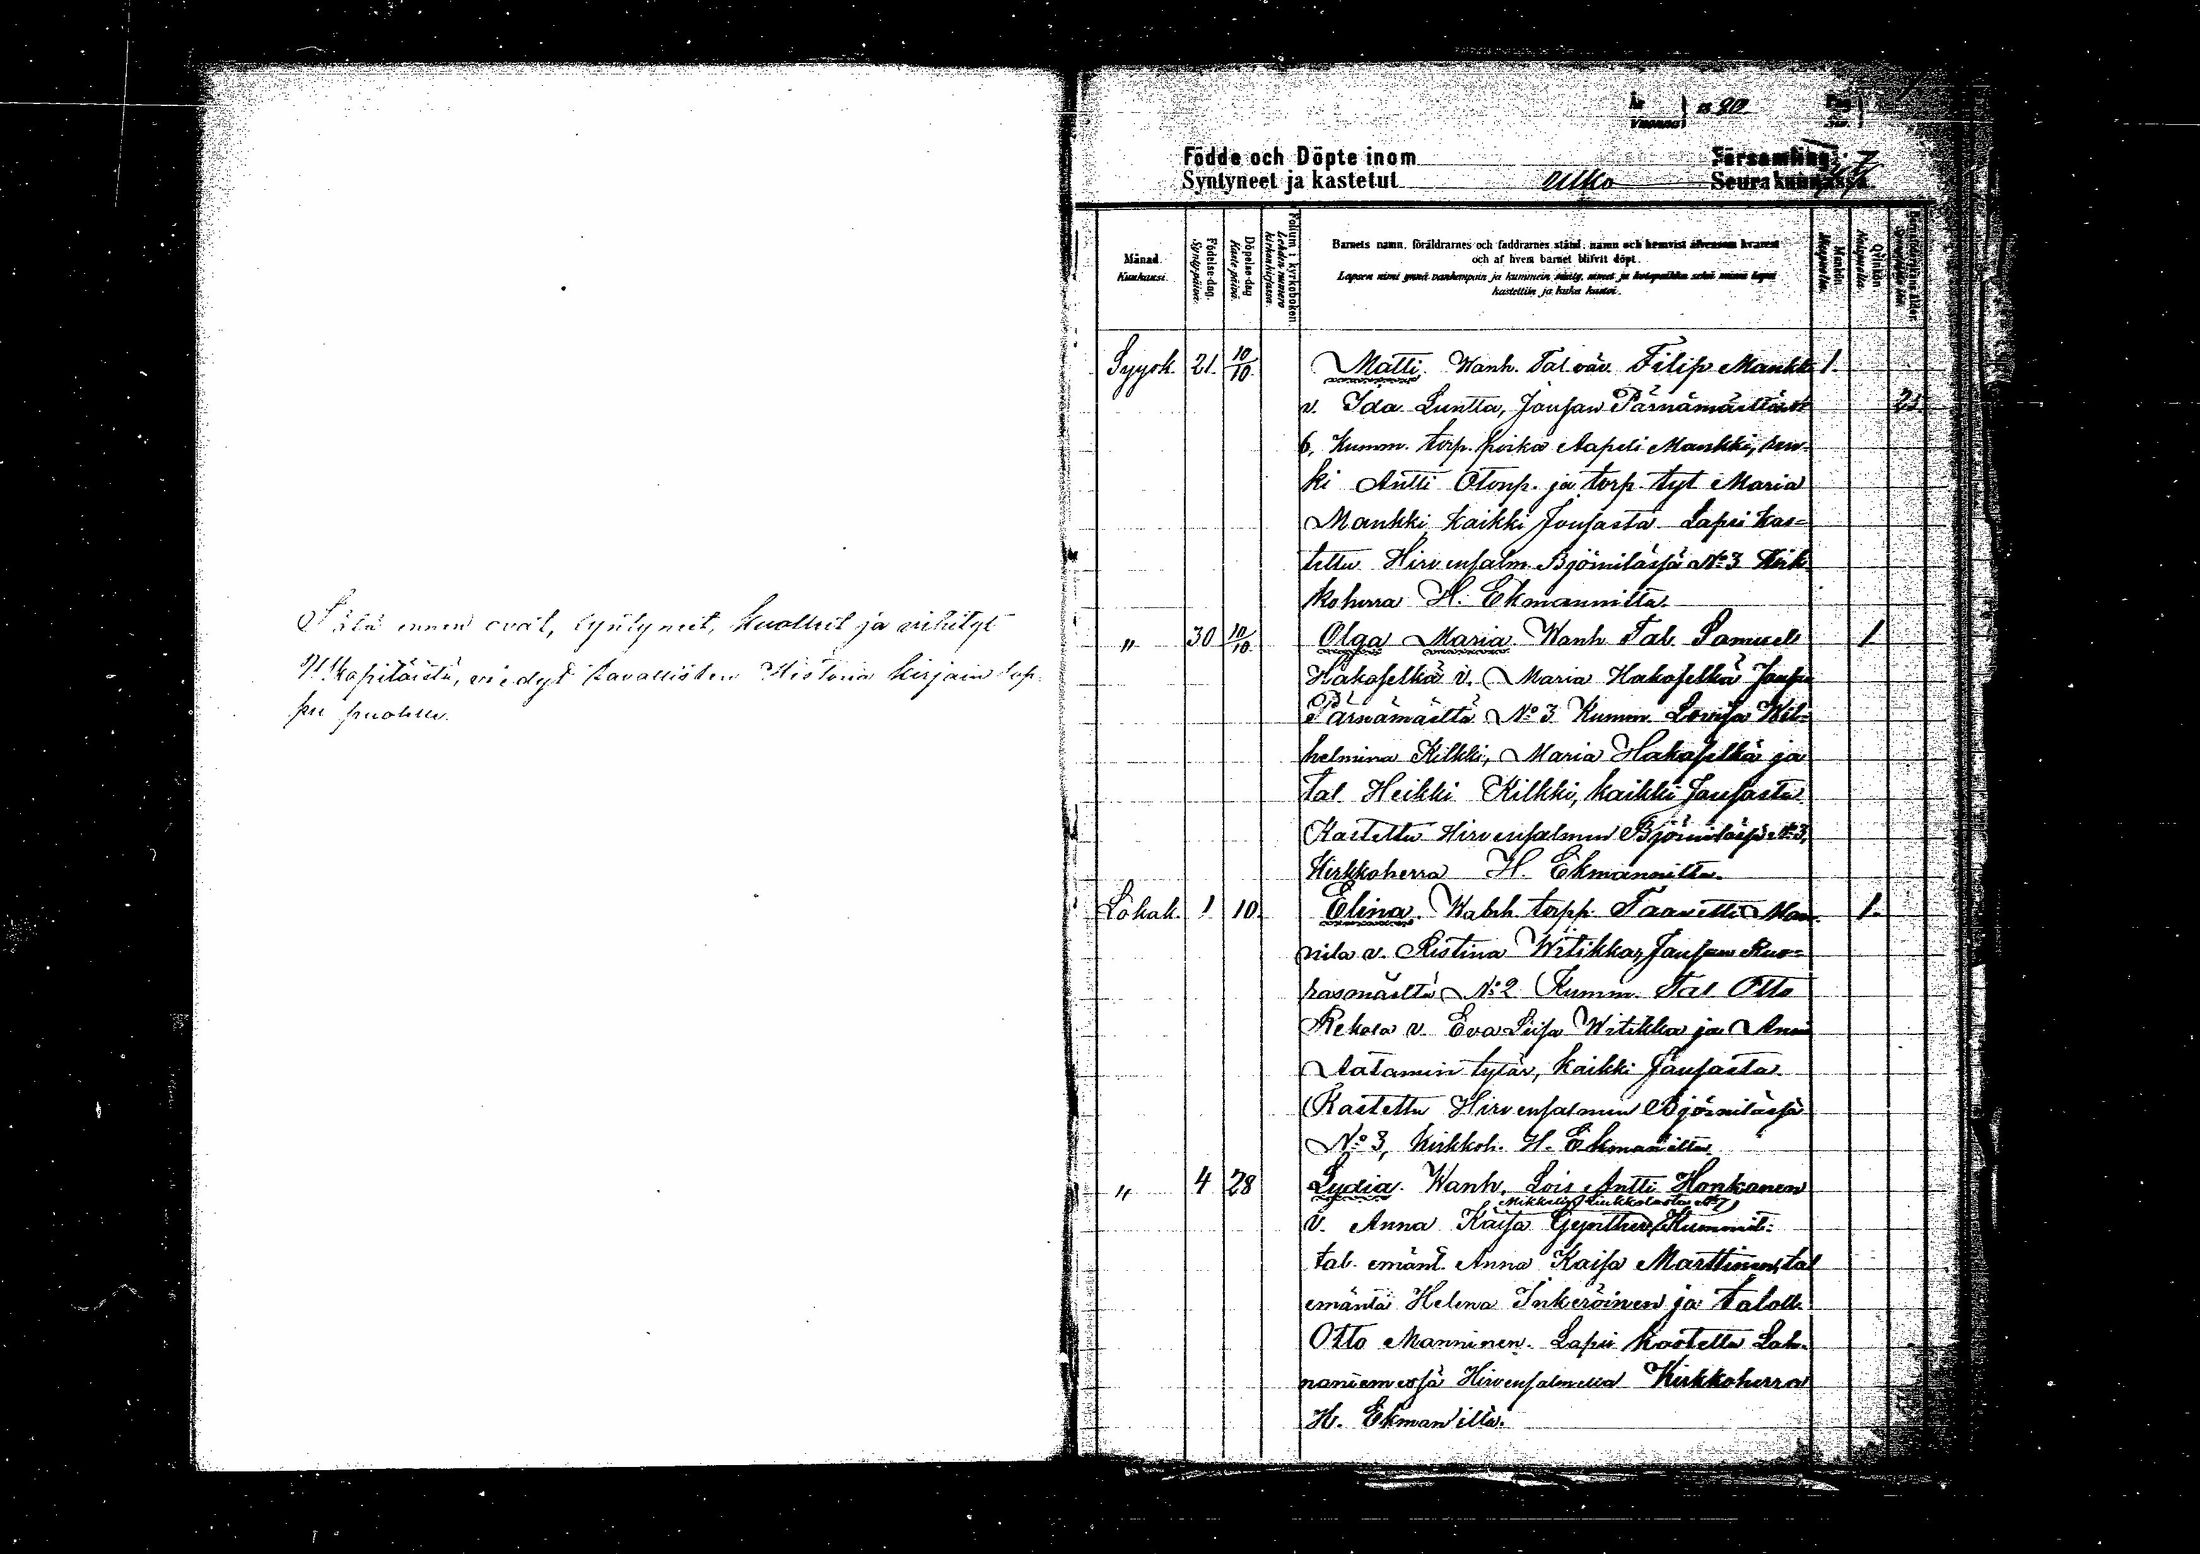 Tätä ennen ovat, syntyneet, kuolleet ja vihityt
Ulkopitäistä, viedyt tavallisten Historia kirjain lop-
pu puoleen.
År
Vuonna
18 90.
Pag.
Siv.
Födde och Döpte inom
Församling
Syntyneet ja kastetut Ulko Seurakunnassa
Månad.
Kuukausi.
Födelse-dag.
Syntypäivä.
Döpelse-dag
Kaste-päivä.
Folium i kyrkoboken
Lehden numero kirkonkirjassa.
Barnets namn, föräldrarnes och faddrarnes stånd, namn och hemvist äfvensom hvarest
och af hvem barnet blifvit döpt.
Lapsen nimi ynnä vanhempain ja kummein sääty, nimet ja kotopaikka sekä missä lapsi
kastettiin ja kuka kastoi.
Mankön.
Miespuolia.
Qvinkön
Naispuolia.
Syysk. 21. 10/10. Matti. Wanh. Tal. väv. Filip Mankki 1.
v. Ida Luntta, Joutsan Pärnämäeltä N:o 23.
6, Kumm. torp. poika Aapeli Mankki, ren-
ki Antti Otonp. ja torp. tyt Maria
Mankki kaikki Joutsasta. Lapsi kas-
tettu Hirvensalm. Björnilässä N:o 3 Kirk-
koherra H. Ekmannilta.
" 30 10/10 Olga Maria. Wanh. Tal. Samuel 1
Hakoselkä v. Maria Hakoselkä Joutsa
Pärnämäeltä N:o 3. Kumm. Lovisa Wil-
helmina Kilkki, Maria Hakoselkä ja
tal Heikki Kilkki, kaikki Joutsasta
Kastettu Hirvensalmen Björnilässä N:o 3,
Kirkkoherra H. Ekmannilta.
Lokak. 1 10. Elina. Wanh. torpp. Taavetti Man- 1.
nila v. Ristina Witikka, Joutsan Ruo-
rasmäeltä N:o 2 Kumm. Tal Otto
Rekola v. Eva Liisa Witikka ja Anni
Aatamin tytär, kaikki Joutsasta.
Kastettu Hirvensalmen Björnilässä
N:o 3, Kirkkoh. H. Ekmanilta.
" 4 28 Lydia. Wanh. Lois Antti Honkanen
Mikkelin N:o 7
v. Anna Kaisa Gynther, Kummit:
tal. emänt. Anna Kaisa Marttinen, tal
emäntä Helena Inkeröinen ja taloll.
Otto Manninen. Lapsi kastettu Lah-
naniemessä Hirvensalmella Kirkkoherra
H. Ekman'ilta.